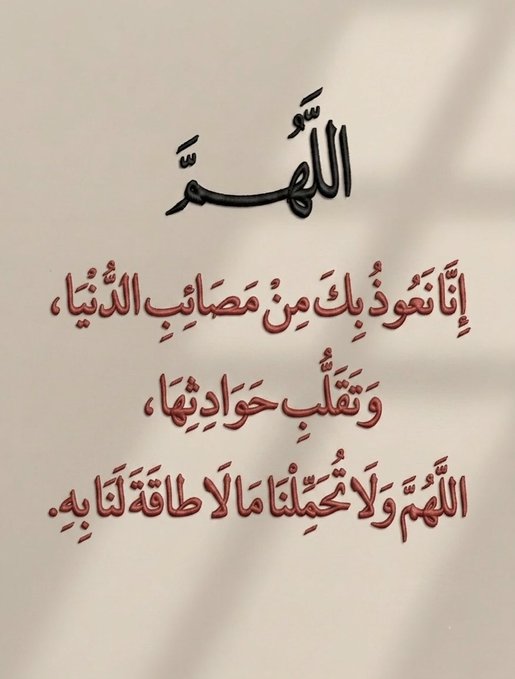 اللَّهُمَّ
إِنَّا نَعُوذُ بِكَ مِنْ مَصَائِبِ الدُّنْيَا،
وَتَقَلُّبِ حَوَادِثِهَا،
اللَّهُمَّ وَلَا تُحَمِّلْنَا مَا لَا طَاقَةَ لَنَا بِهِ.